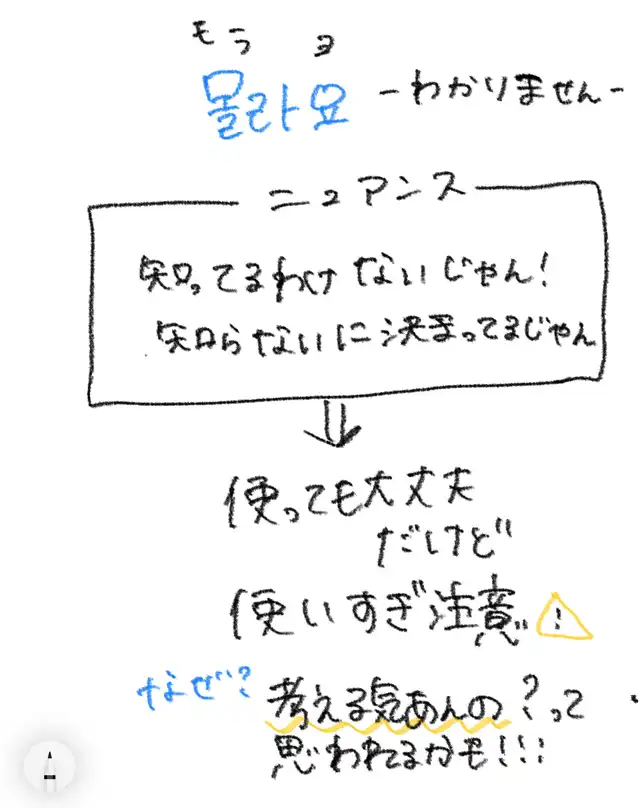 モラ ヨ
몰라요 -わかりません-
ニュアンス
知ってるわけないじゃん!
知らないに決まってるじゃん
使っても大丈夫
だけど
使いすぎ注意 !
なぜ? 考える気あんの?って
思われるかも!!!